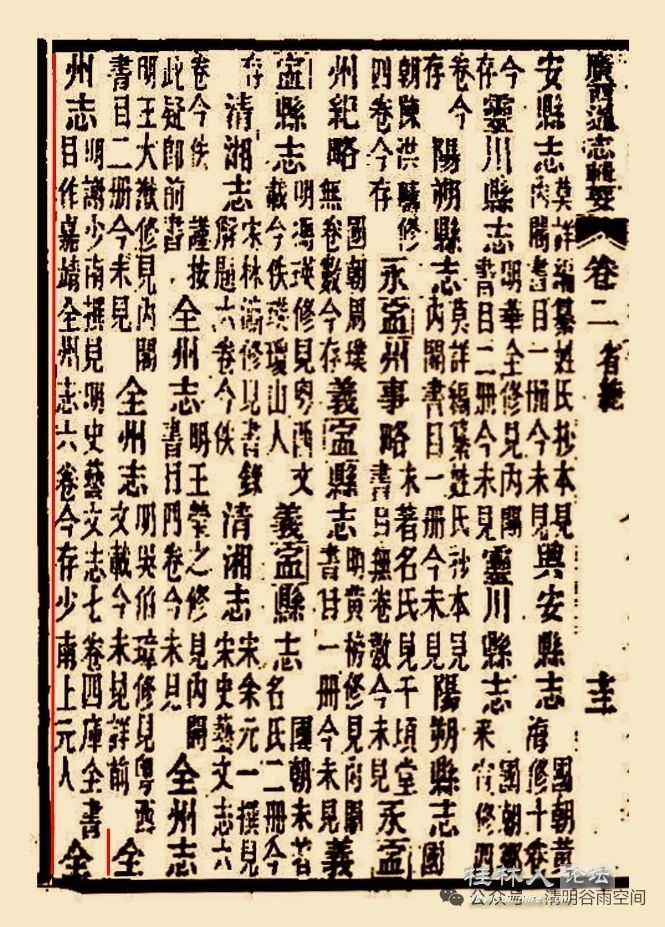 廣西通志輯要 卷二 省總
安縣志 莫詳編纂姓氏抄本見內閣書目一冊今未見 興安縣志 國朝黃海修十卷
今存 靈川縣志 明華全修見內閣書目二冊今未見 靈川縣志 國朝鄭采宣修四
卷今存 陽朔縣志 莫詳編纂姓氏抄本見內閣書目一冊今未見 陽朔縣志 國
朝陳洪疇修四卷今存 永寍州事略 未著名氏見千頃堂書目無卷數今未見 永寍
州紀略 國朝周璞無卷數今存 義寍縣志 明黃榜修見內閣書目一冊今未見 義
寍縣志 明馮瑛修見粵西文載今佚瑛瓊山人 義寍縣志 國朝未著名氏二冊今
存 清湘志 宋林瀛修見書錄解題六卷今佚 清湘志 宋余元一撰見宋史藝文志六
卷今佚 謹按此疑卽前書 全州志 明王瑩之修見內閣書目四卷今未見 全州志
明王大徵修見內閣書目二冊今未見 全州志 明吳伯璋修見粵西文載今未見詳前 全
州志 明謝少南撰見明史藝文志七卷四庫全書目作嘉靖全州志六卷今存少南上元人 全
桂林人論坛
公众号 清明谷雨空间